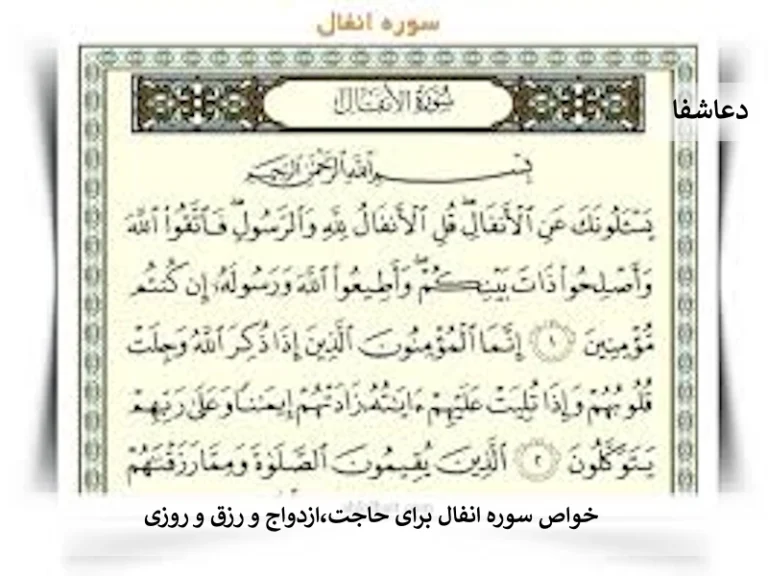 سوره انفال
دعاشفا
سُورَةُ الأَنفَالِ
بِسْمِ اللَّهِ الرَّحْمَٰنِ الرَّحِيمِ
يَسْـَٔلُونَكَ عَنِ ٱلْأَنفَالِ ۖ قُلِ ٱلْأَنفَالُ لِلَّهِ وَٱلرَّسُولِ ۖ فَٱتَّقُوا۟ ٱللَّهَ
وَأَصْلِحُوا۟ ذَاتَ بَيْنِكُمْ ۖ وَأَطِيعُوا۟ ٱللَّهَ وَرَسُولَهُۥٓ إِن كُنتُم
مُّؤْمِنِينَ ١ إِنَّمَا ٱلْمُؤْمِنُونَ ٱلَّذِينَ إِذَا ذُكِرَ ٱللَّهُ وَجِلَتْ
قُلُوبُهُمْ وَإِذَا تُلِيَتْ عَلَيْهِمْ ءَايَٰتُهُۥ زَادَتْهُمْ إِيمَٰنًا وَعَلَىٰ رَبِّهِمْ
يَتَوَكَّلُونَ ٢ ٱلَّذِينَ يُقِيمُونَ ٱلصَّلَوٰةَ وَمِمَّا رَزَقْنَٰهُمْ
خواص سوره انفال برای حاجت،ازدواج و رزق و روزی